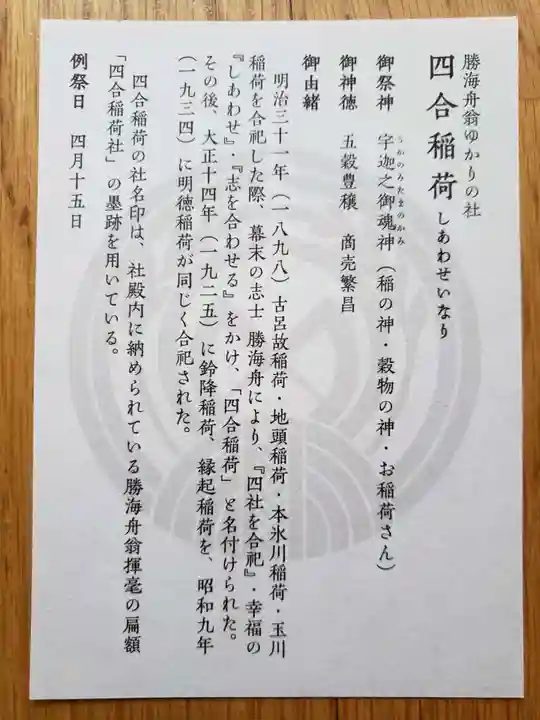 勝海舟翁ゆかりの社
四合稲荷 しあわせいなり
御祭神 宇迦之御魂神(稲の神・穀物の神・お稲荷さん)
うかのみたまのかみ
御神徳 五穀豊穣 商売繁昌
御由緒
明治三十一年(一八九八)古呂故稲荷・地頭稲荷・本氷川稲荷・玉川
稲荷を合祀した際、幕末の志士 勝海舟により、『四社を合祀』・幸福の
『しあわせ』・『志を合わせる』をかけ、「四合稲荷」と名付けられた。
その後、大正十四年(一九二五)に鈴降稲荷、縁起稲荷を、昭和九年
(一九三四)に明徳稲荷が同じく合祀された。
四合稲荷の社名印は、社殿内に納められている勝海舟翁揮毫の扁額
「四合稲荷社」の墨跡を用いている。
例祭日 四月十五日